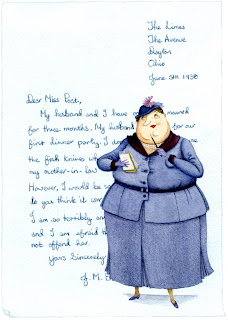 The Limes
The Avenue
Dayton
Ohio
June 5th 1938
Dear Miss Post,
My husband and I have married
for three months. My husband for our
first dinner party. I
the fish knives
my mother-in-law
However, I would be
to you think it
I am so terribly
and I am afraid
not offend her.
Yours Sincerely